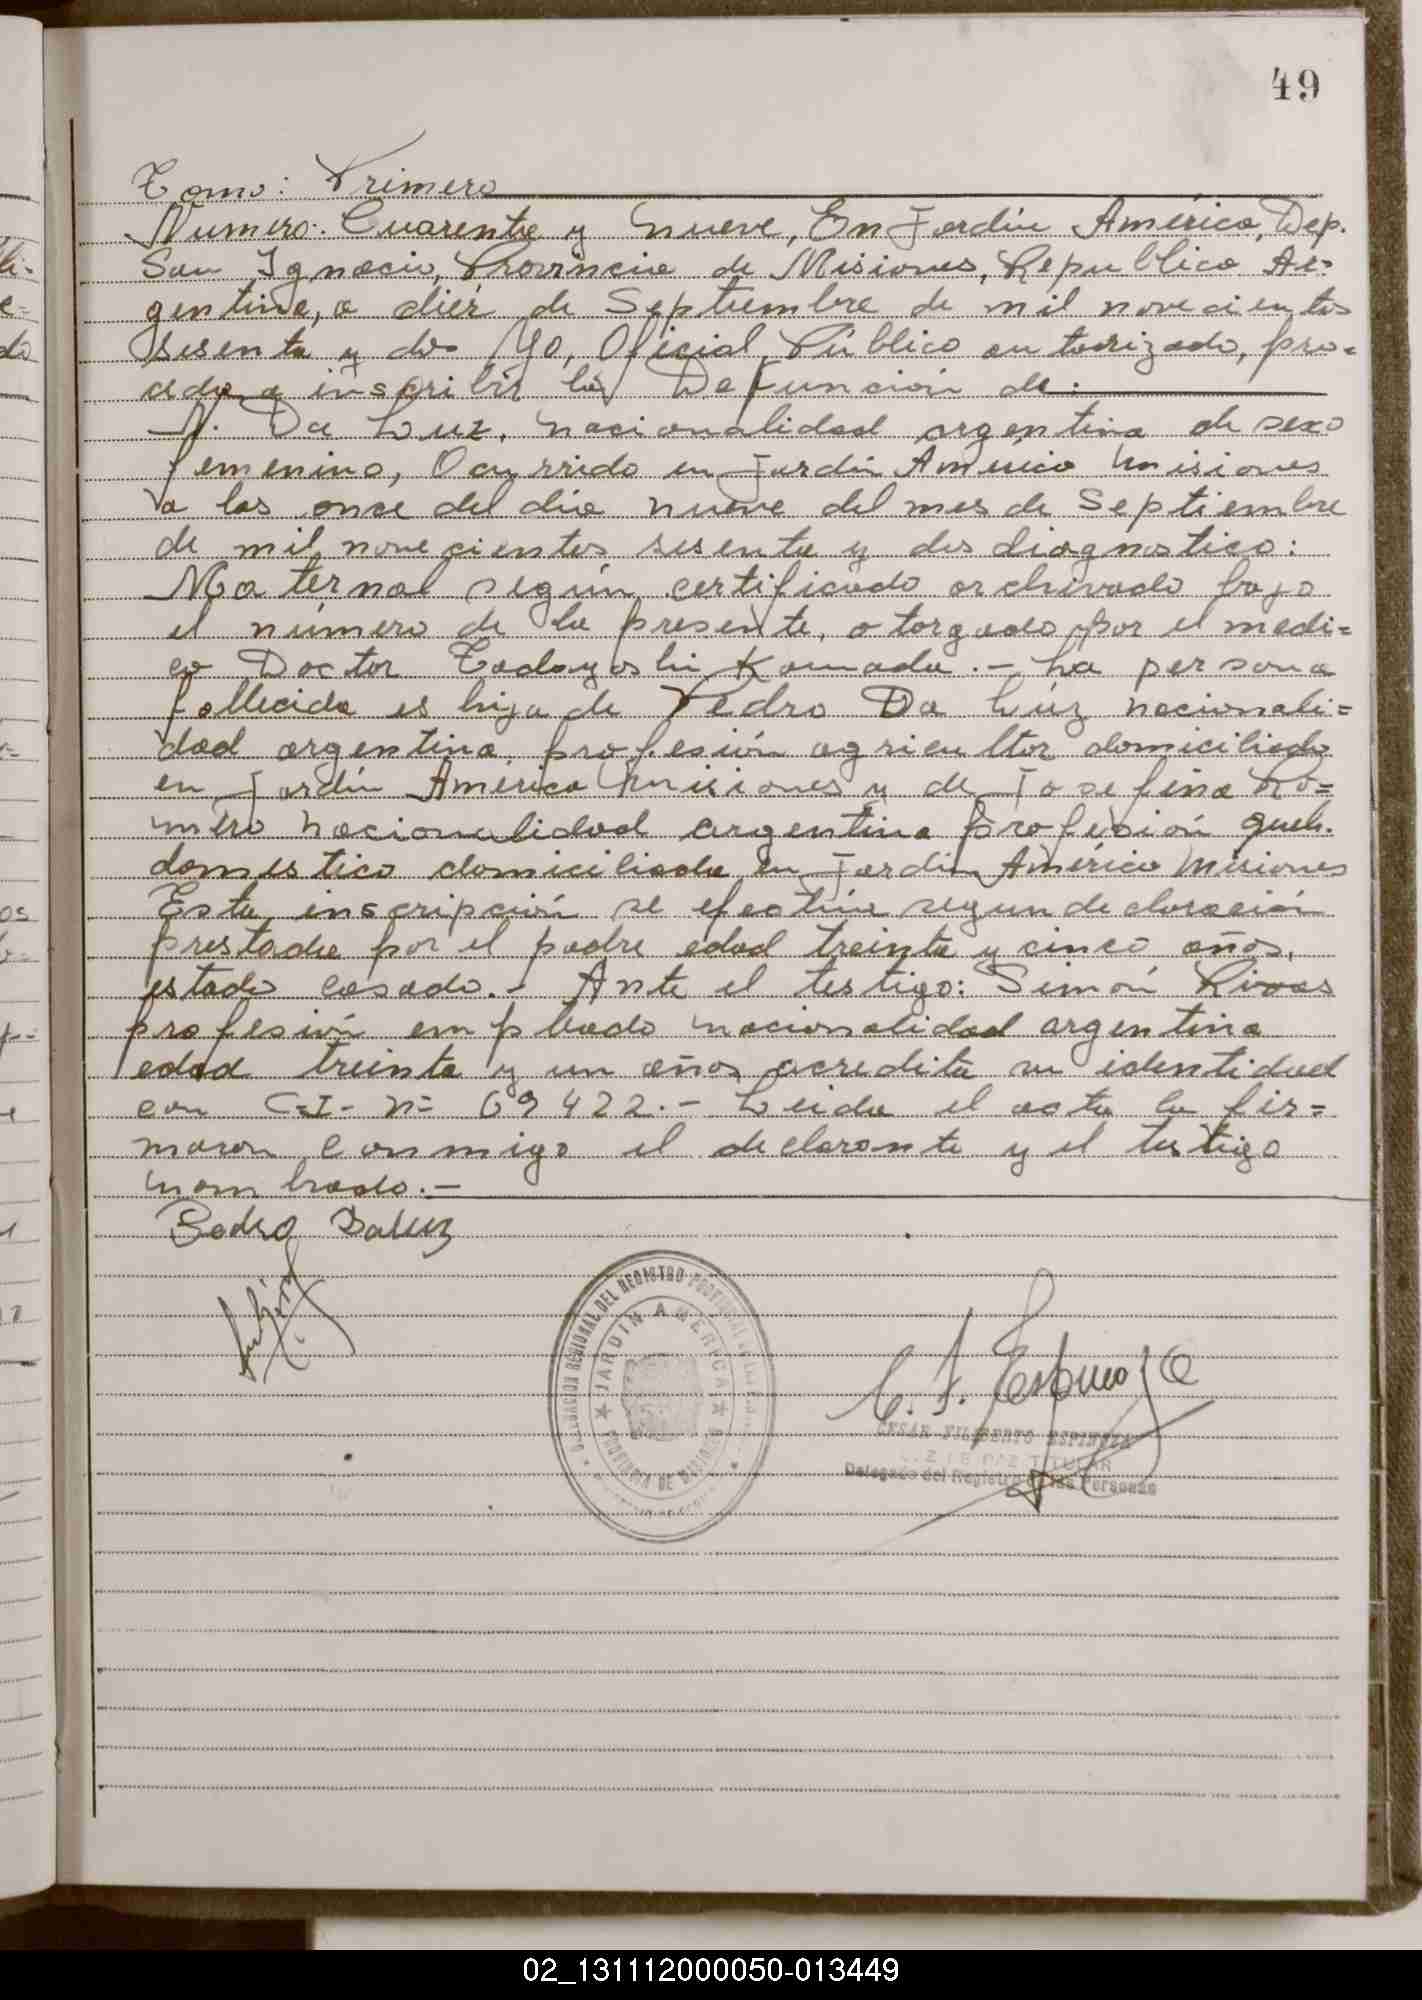 49
Tomo: Primero
Numero: Cuarenta y nueve, En Jardín América, Dep.
San Ignacio, Provincia de Misiones, Republica Ar-
gentina, a diez de Septiembre de mil novecientos
sesenta y dos Yo, Oficial Público autorizado, pro-
cedo a inscribir la Defunción de:
N. Da Luz, nacionalidad argentina de sexo
femenino, Ocurrido en Jardín América Misiones
a las once del día nueve del mes de Septiembre
de mil novecientos sesenta y dos diagnostico:
Maternal según certificado archivado bajo
el número de la presente, otorgado por el medi=
co Doctor Tadayoshi Kamada.- La persona
fallecida es hija de Pedro Da Lúz nacionali=
dad argentina profesión agricultor domiciliado
en Jardín América Misiones y de Josefina Ro=
mero nacionalidad argentina profesión queh.
domestico domiciliada en Jardín América Misiones
Esta inscripción se efectúa segun declaración
prestada por el padre edad treinta y cinco años,
estado casado.- Ante el testigo: Simón Rivas
profesión empleado nacionalidad argentina
edad treinta y un años acredita su identidad
con C=I- N= 69422.- Leida el acta la fir=
maron conmigo el declarante y el testigo
nombrado.-
Pedro DaLuz
DELEGACION REGIONAL DEL REGISTRO PROVINCIAL
JARDIN AMERICA
PROVINCIA DE MISIONES
C. F. Espinoza
CESAR FILIBERTO ESPINOZA
JUEZ DE PAZ TITULAR
Delegado del Registro de las Personas
02_131112000050-013449